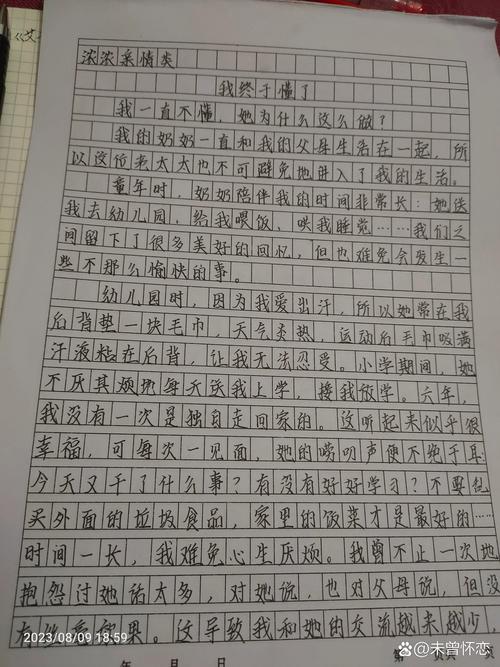 《艾
浓浓亲情类
我终于懂了
我一直不懂，她为什么这么做？
我的奶奶一直和我的父母生活在一起，所
以这位老太太也不可避免地进入了我的生活。
童年时，奶奶陪伴我的时间非常长：她送
我去幼儿园，给我喂饭，哄我睡觉……我们之
间留下了很多美好的回忆，但也难免会发生一
些不那么愉快的事。
幼儿园时，因为我爱出汗，所以她常在我
后背垫一块毛巾，天气炎热，运动后毛巾吸满
汗液粘在后背，让我无法忍受。小学期间，她
不厌其烦地每天送我上学，接我放学。六年，
我没有一次是独自走回家的。这听起来似乎很
幸福，可每次一见面，她的唠叨声便不绝于耳
今天又干了什么事？有没有好好学习？不要乱
买外面的垃圾食品，家里的饭菜才是最好的……
时间一长，我难免心生厌烦。我曾不止一次地
抱怨过她话太多，对她说，也对父母说，但没
有效果。这导致我和她的交流越来越少，
2023/08/09 18:59
年 月 日
@未曾怀恋